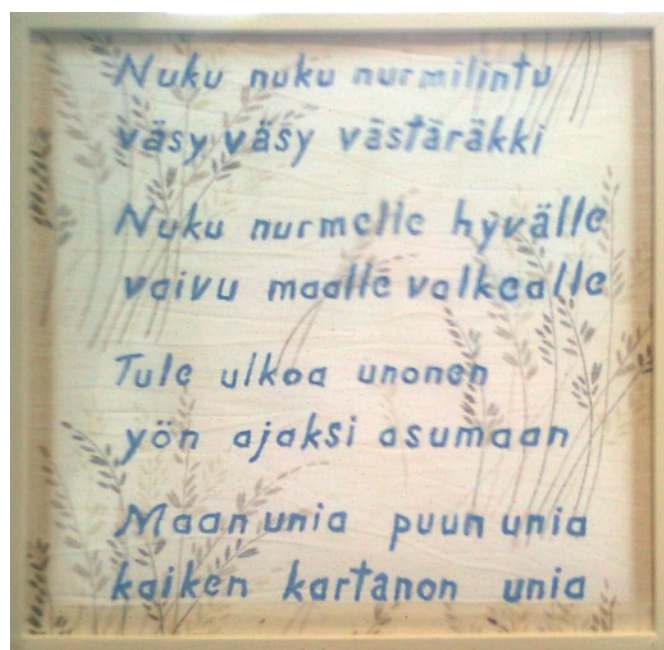 Nuku nuku nurmilintu
väsy väsy västäräkki
Nuku nurmelle hyvälle
vaivu maalle valkealle
Tule ulkoa unonen
yön ajaksi asumaan
Maan unia puun unia
kaiken kartanon unia